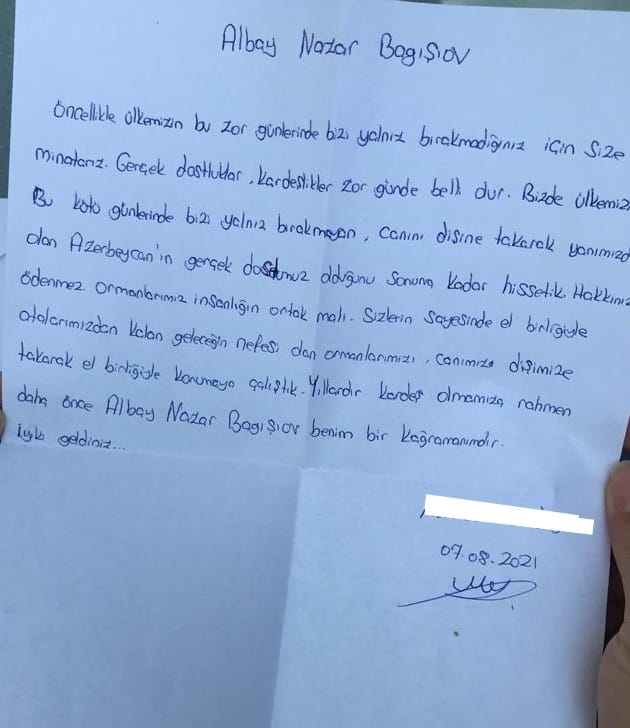 Albay Nazar Bagışıov
Öncellikle ülkemizin bu zor günlerinde bizi yalnız bırakmadığınız için size
minatarız. Gerçek dostluklar, kardeslikler zor günde belli dur. Bizde ülkemiz
Bu kötü günlerinde bizi yalnız bırakmayan, canını dişine takarak yanımızd
olan Azerbeycan'ın gerçek dostumuz olduğunu sonuna kadar hissetik. Hakkını
ödenmez ormanlarımız insanlığın ortak malı. Sizlerin sayesinde el birliğiyle
atalarımızdan kalan geleceğin nefesi olan ormanlarımızı, canımıza dişimize
takarak el birliğiyle korumaya çalıştık. Yıllardır kardeş olmamıza rahmen
daha önce Albay Nazar Bagışıov benim bir kağramanımdır.
iyki geldiniz...
07.08.2021